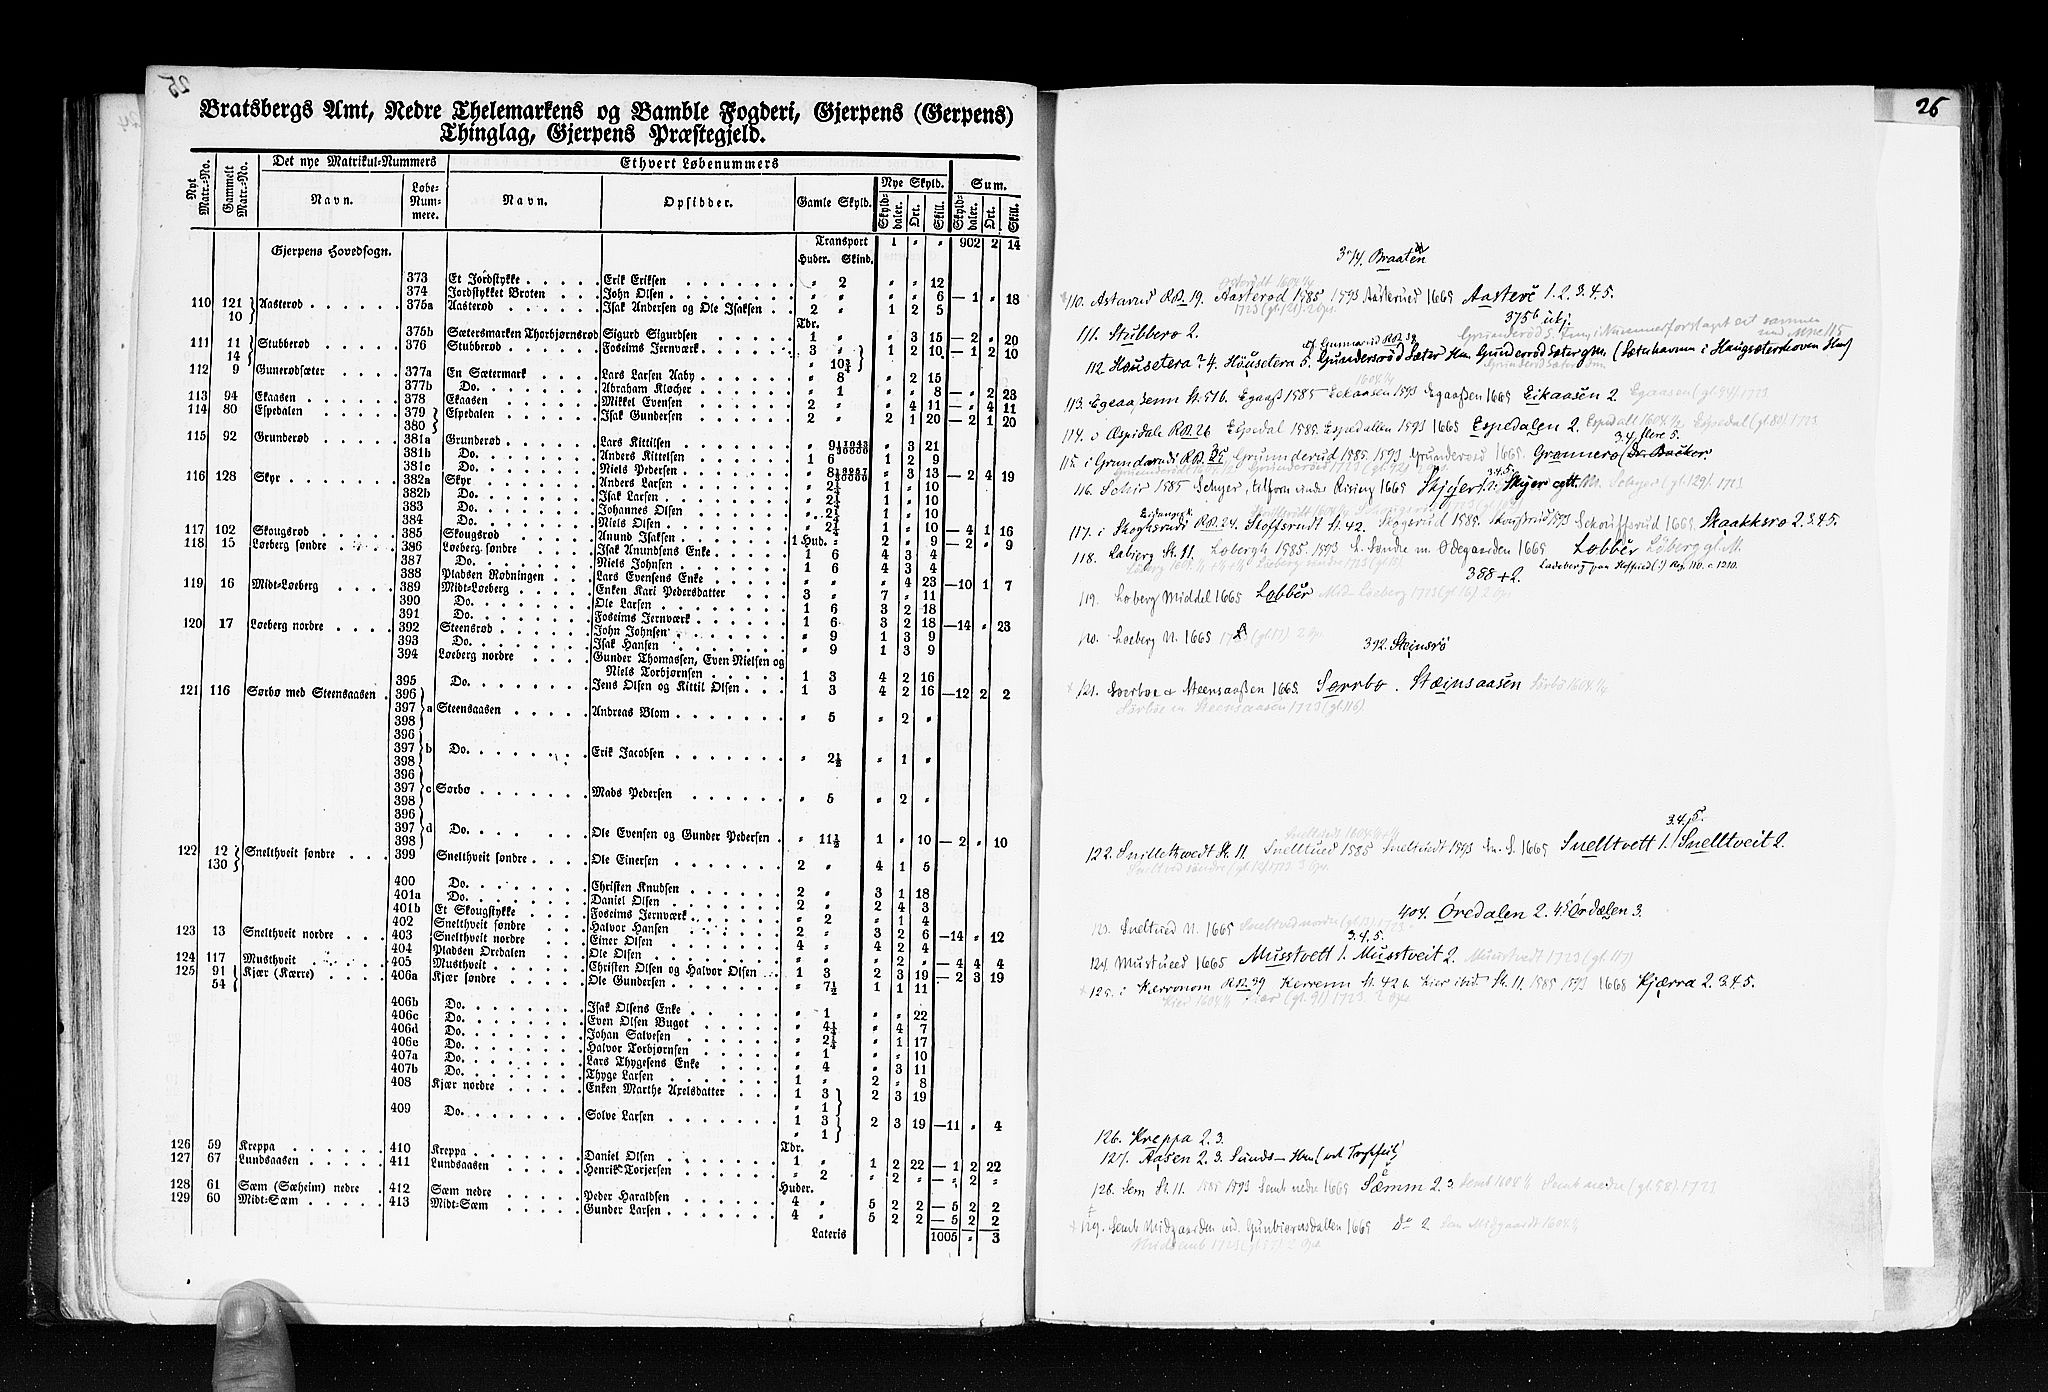 25
Bratsbergs Amt, Nedre Thelemarkens og Bamble Fogderi, Gjerpens (Gerpens)
Thinglag, Gjerpens Præstegjeld.
Nyt Matr.-No. Gammelt Matr.-No. Det nye Matrikul-Nummers Ethvert Løbenummers
Navn. Løbe-Nummere. Navn. Opsidder. Gamle Skyld. Nye Skyld. Sum.
Skyld-daler. Ort. Skill. Skyld-daler. Ort. Skill.
Transport 1 " " 902 2 14
Gjerpens Hovedsogn. Huder. Skind.
373 Et Jordstykke Erik Eriksen " 2 " " 12
374 Jordstykket Broten John Olsen " " " " 6 — 1 " 18
110 121 10 Aasterød 375a Aasterød Isak Andersen og Ole Isaksen 2 " 1 2 5
Tdr.
375b Sætersmarken Thorbjørnsrød Sigurd Sigurdsen 1 " " 3 15 — 2 " 20
111 11 14 Stubberød 376 Stubberød Fossims Jernværk 3 " 10¾ 1 2 10 — 1 2 10
112 9 Gunerødsæter 377a En Sætermark Lars Larsen Aaby " 8 " 2 15
377b Do. Abraham Klocher " 1 " " 8 — " 2 23
113 94 Ekaasen 378 Ekaasen Mikkel Evensen 2 " " 4 11 — " 4 11
114 80 Espedalen 379 380 Espedalen Isak Gundersen 2 " 2 1 20 — 2 1 20
115 92 Grunderød 381a Grunderød Lars Kittilsen " 3 21
381b Do. Anders Kittelsen 1 6 1 2 9
381c Do. Niels Pedersen " 3 13 — 2 4 19
116 128 Skyr 382a Skyr Anders Larsen " 2¼ 1 " 10
382b Do. Isak Larsen " 2¼ 1 " 10
383 Do. Johannes Olsen " 2¼ 1 " 10
384 Do. Niels Olsen " 2¼ 1 " 10 — 4 1 16
117 102 Skougsrød 385 Skougsrød Anund Isaksen 1 Hud. " 2 " 9 — 2 " 9
118 15 Løeberg søndre 386 Løeberg søndre Isak Anundsens Enke 1 6 4 3 4
387 Do. Niels Johnsen 1 6 4 3 4
388 Pladsen Rødningen Lars Evensens Enke " " " 4 23 — 10 1 7
119 16 Midt-Løeberg 389 Midt-Løeberg Enken Kari Pedersdatter 3 " 7 " 11
390 Do. Ole Larsen 1 6 3 2 18
391 Do. Fossims Jernværk 1 6 3 2 18 — 14 " 23
120 17 Løeberg nordre 392 Steensrød John Johnsen " 9 1 3 9
393 Do. Isak Hansen " 9 1 3 9
394 Løeberg nordre Gunder Thomassen, Even Nielsen og
Niels Torbjørnsen 1 3 4 2 16
395 Do. Jens Olsen og Kittil Olsen 1 3 4 2 16 — 12 2 2
121 116 Sørbø med Steensaasen 396 397 398 a Steensaasen Andreas Blom " 5 " 2 "
396 397 398 b Do. Erik Jacobsen " 2½ " 1 "
396 397 398 c Sørbø Mads Pedersen " 5 " 2 "
396 397 398 d Do. Ole Evensen og Gunder Pedersen " 11½ 1 " 10 — 2 " 10
122 12 130 Snelthveit søndre 399 Snelthveit søndre Ole Einersen 2 " 4 1 5
400 Do. Christen Knudsen 2 " 3 1 18
401a Do. Daniel Olsen 2 " 2 4 3
401b Et Skougstykke Fossims Jernværk " 2 " 1 4
402 Snelthveit søndre Halvor Hansen 2 " 3 2 6 — 14 " 12
123 13 Snelthveit nordre 403 Snelthveit nordre Einer Olsen 4 " 4 2 4
404 Pladsen Ørdalen Ole Olsen " " " " " — 4 4 4
124 117 Musthveit 405 Musthveit Christen Olsen og Halvor Olsen 1 3 2 3 19 — 2 3 19
125 91 54 Kjær (Kærre) 406a Kjær søndre Ole Gundersen " 7½ 1 1 11
406b Do. Isak Olsens Enke " 1 " " 22
406c Do. Even Olsen Bugot " 4¼ " 4 7
406d Do. Johan Salvesen " 2¼ " 1 17
406e Do. Halvor Torbjørnsen " 1 " " 10
407a Do. Lars Thygesens Enke " 4 " 3 11
407b Do. Thyge Larsen 1 " 2 " 8
408 Kjær nordre Enken Marthe Axelsdatter 1 3 " 1 2 3 19
409 Do. Solve Larsen 1 3 " 1 2 3 19 — 11 " 4
Tdr.
126 59 Kreppa 410 Kreppa Daniel Olsen 1 " 1 2 22 — 1 2 22
127 67 Lundsaasen 411 Lundsaasen Henrik Torjersen " 2 " 2 " — " 2 "
Huder.
128 61 Sæm (Sæheim) nedre 412 Sæm nedre Peder Haraldsen 4 " 5 2 2 — 5 2 2
129 60 Midt-Sæm 413 Midt-Sæm Gunder Larsen 4 " 5 2 2 — 5 2 2
Lateris 1005 " 3
26
374. Braaten
110. Astarud RB. 19. Aasterød 1585 1593 Aasterued 1665 Aasterö 1. 2. 3. 4. 5.
1723 (gl. 121). 2 Ops.
375b utj.
111. Stubberö 2.
af Gunnarud RB 39
112. Housetera? 4. Höusetera 5. Gundersrød Sæter Hm. Gunderød Sæter gM. (Sæterhavnen i Haugsæterskoven Hm)
113. Egeaasenn St. 51b. Egaaß 1585 Eckaasen 1593 Egaaßen 1665 Eikaasen 2 Egaasen (gl. 94). 1723
114. o Æspidale RB. 26 Espedal 1585. Espedallen 1593 1665 Espedalen 2. Espedal (gl. 80). 1723
3.4. flere 5.
115. i Grundarudi RB. 25 Grunnderud 1585. 1593 Grunderød 1665 Grønnerö
Grunderød 1723 (gl. 92) 2 Ops.
3.4.5.
116. Schir 1585 Schyer, tilforn under Rising 1665 Skjyer 1. 2. Skyer gtt. Schyer (gl. 129). 1723
Eidanger k.
117. i Skoghsrudi RB. 24. Stoffsrudt St. 42. Skogsrud 1585. 1593 Schouffsrud 1665. Skaakksrø 2. 3. 4. 5.
118. Labierg St. 11. Lobergh 1585. 1593 L. Søndre m. Ødegaarden 1665 Lobbër Löberg gl. M.
Løeberg søndre 1723 (gl. 15)
388 + 2.
119. Loberg Middel 1665 Lobbër Mid-Løeberg 1723 (gl. 16). 2 Ops
120. Loeberg N. 1665 1723 (gl. 17) 2 Ops.
392. Steinsrö
121. Sørboe & Steensaaßen 1665. Sørrbø. Stæinsaasen Sørbö 1604 1/4
Sørböe m. Steensaasen 1723 (gl. 116)
3.4.5.
122. Snillethwedt St. 11. Snelltued 1585 Sneltuedt 1593 Sn. S. 1665 Snelltvett 1. Snelltveit 2.
Sneltved søndre (gl. 12) 1723 3 Ops.
404. Öredalen 2. 45 Ördalen 3.
123. Sneltued N. 1665 Sneltved nordre (gl. 13) 1723
3.4.5.
124. Mustueed 1665 Musstvett 1. Musstveit 2. Mustvedt 1723 (gl. 117)
125. i Kærronom RB. 39 Kerrenn St. 42b Kier ibid. St. 11 1585 1593 1665 Kjærra 2. 3. 4. 5.
Kier 1604 Kiær (gl. 91) 1723. 2 Ops.
126. Kreppa 2. 3.
127. Aasen 2. 3. Lunds — Hm
128. Sem St. 11. 1585 1593 Semb nedre 1665 Sæmm 2. 3. Semb 1604 Semb nedre (gl. 58). 1723
129. Semb Midgaarden 1665 Do 2 Sem Midgaardt 1604
Midsemb 1723 (gl. 57) 2 Ops.